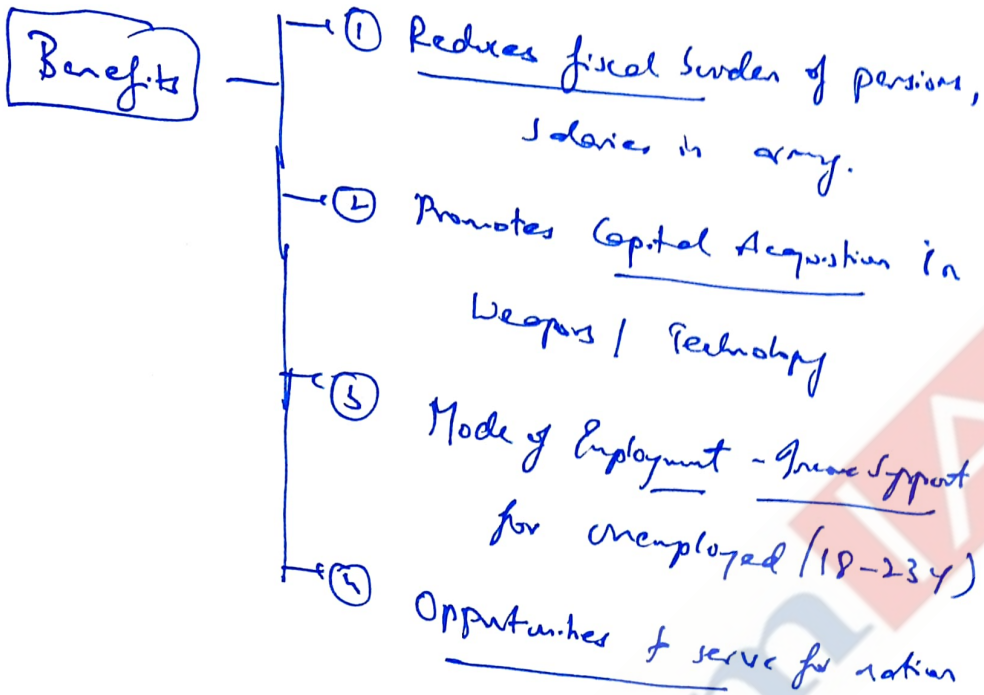 Benefits
① Reduces fiscal burden of pensions,
salaries in army.
② Promotes Capital Acquisition in
Weapons / Technology
③ Mode of Employment - Income Support
for unemployed (18-23y)
④ Opportunities to serve for nation